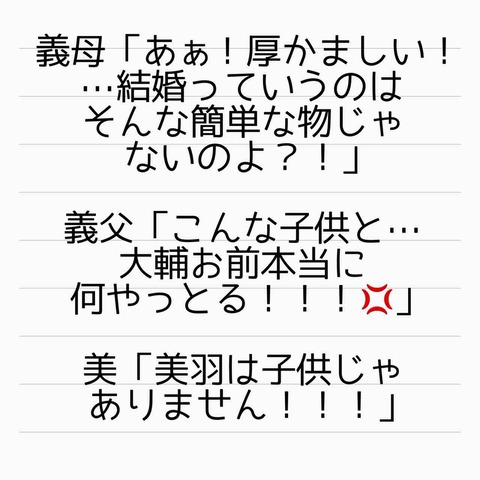 義母「あぁ！厚かましい！
…結婚っていうのは
そんな簡単な物じゃ
ないのよ？！」
義父「こんな子供と…
大輔お前本当に
何やっとる！！！💢」
美「美羽は子供じゃ
ありません！！！」